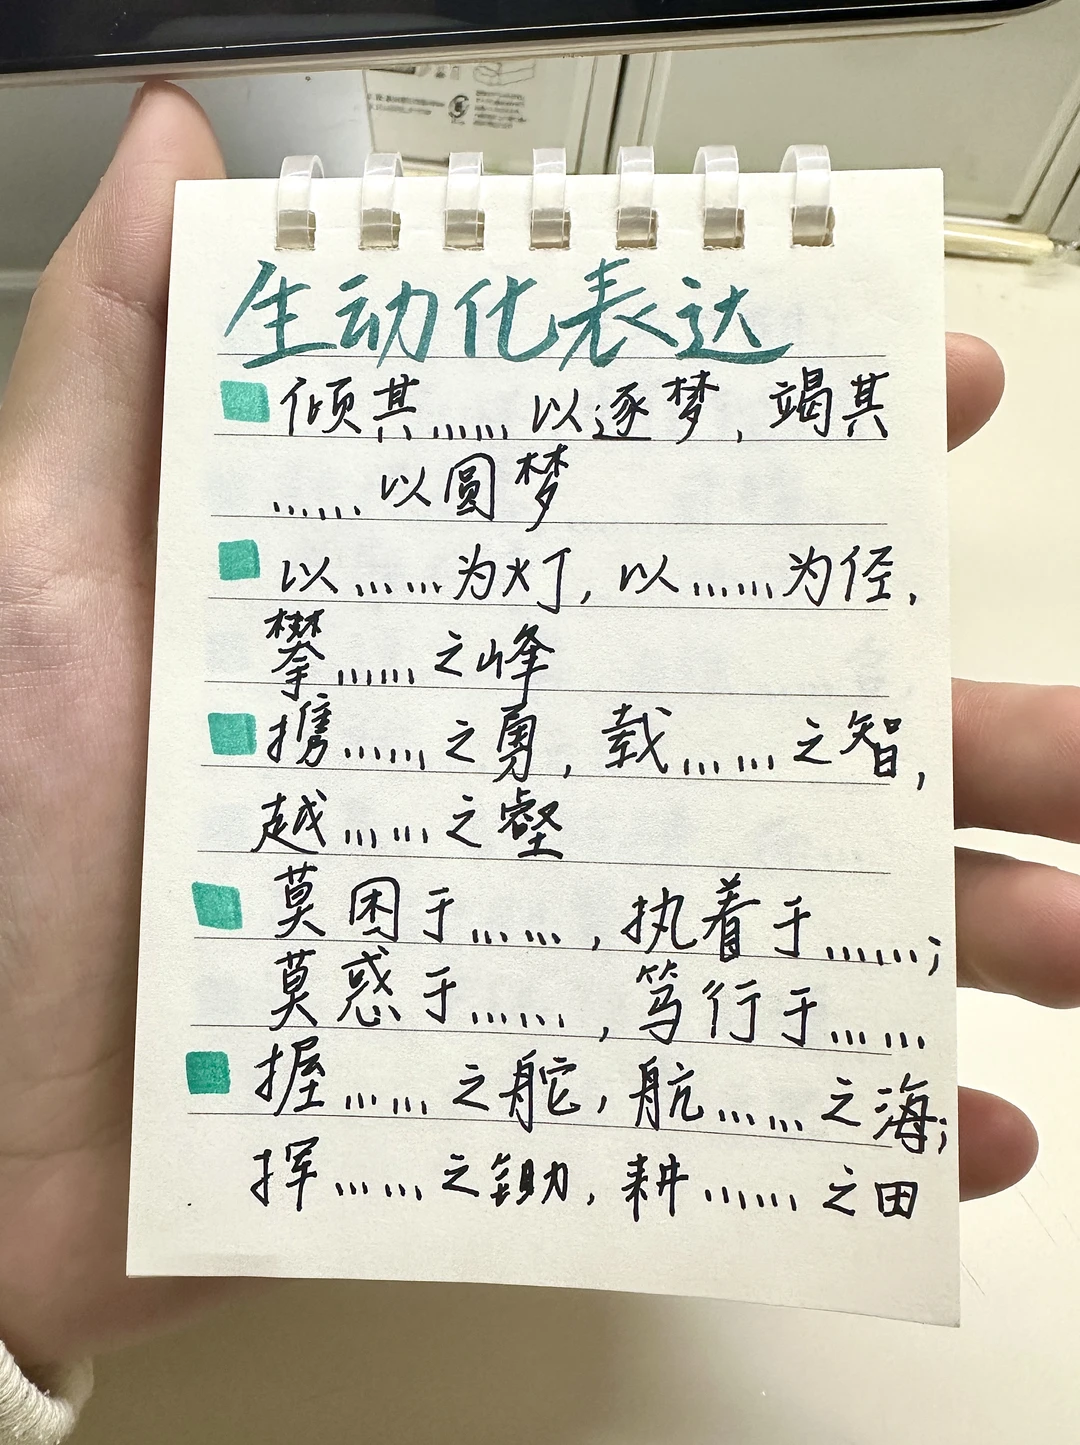 生动化表达
倾其……以逐梦，竭其
……以圆梦
以……为灯，以……为径，
攀……之峰
携……之勇，载……之智，
越……之壑
莫困于……，执着于……；
莫惑于……，笃行于……
握……之舵，航……之海；
挥……之锄，耕……之田